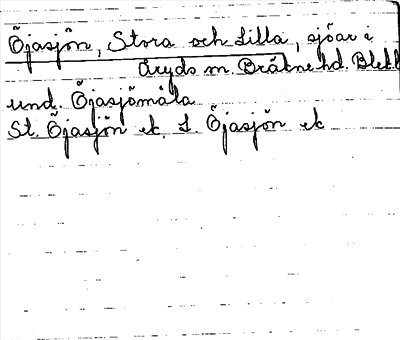 Öjasjön, Stora och Lilla, sjöar i
Åryds m. Bräkne hd. Blek
und. Öjasjömåla
St. Öjasjön ek. L. Öjasjön ek